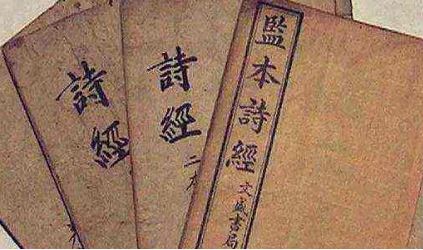 監本詩經 文盛書局
詩經 二本
詩經